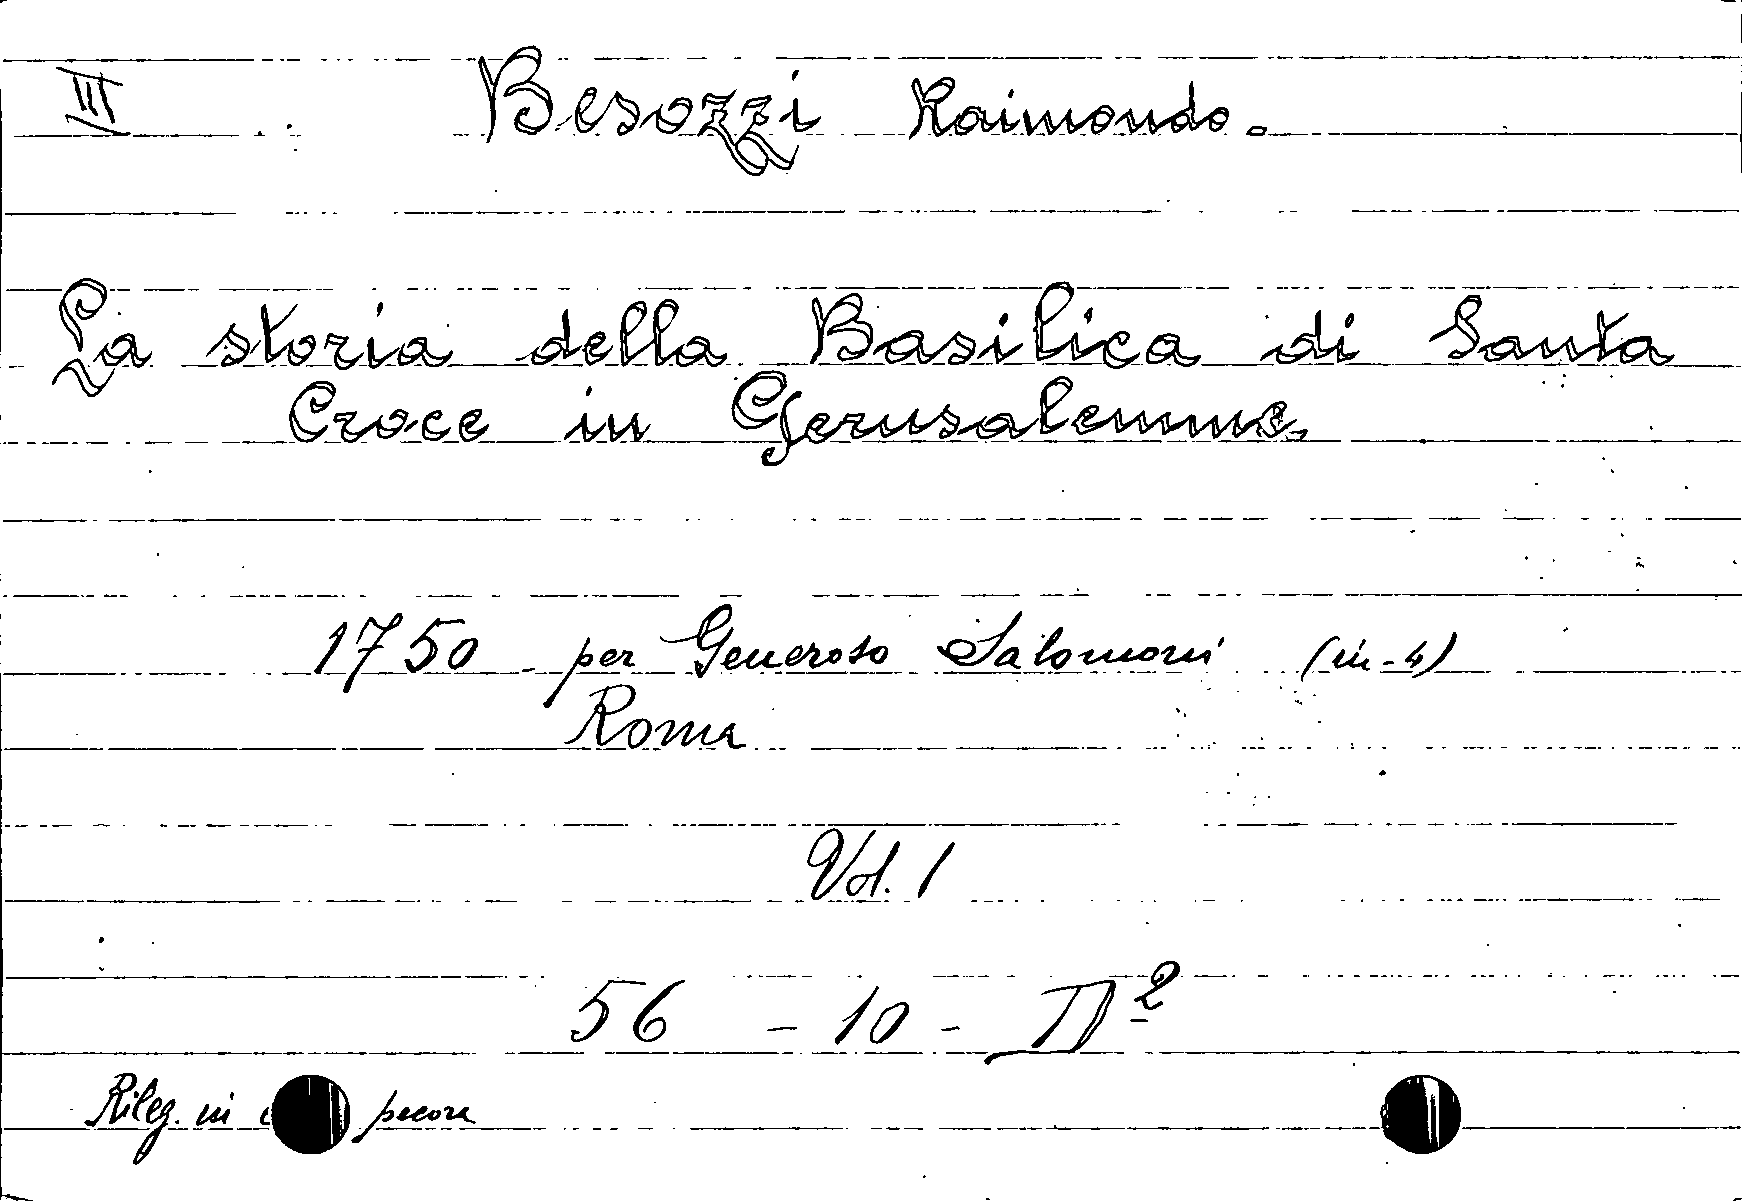 III Besozzi Raimondo.
La storia della Basilica di Santa
Croce in Gerusalemme.
1750 - per Generoso Salomoni (in-4)
Roma
Vol. 1
56 - 10 - II²
Rileg. in pecora